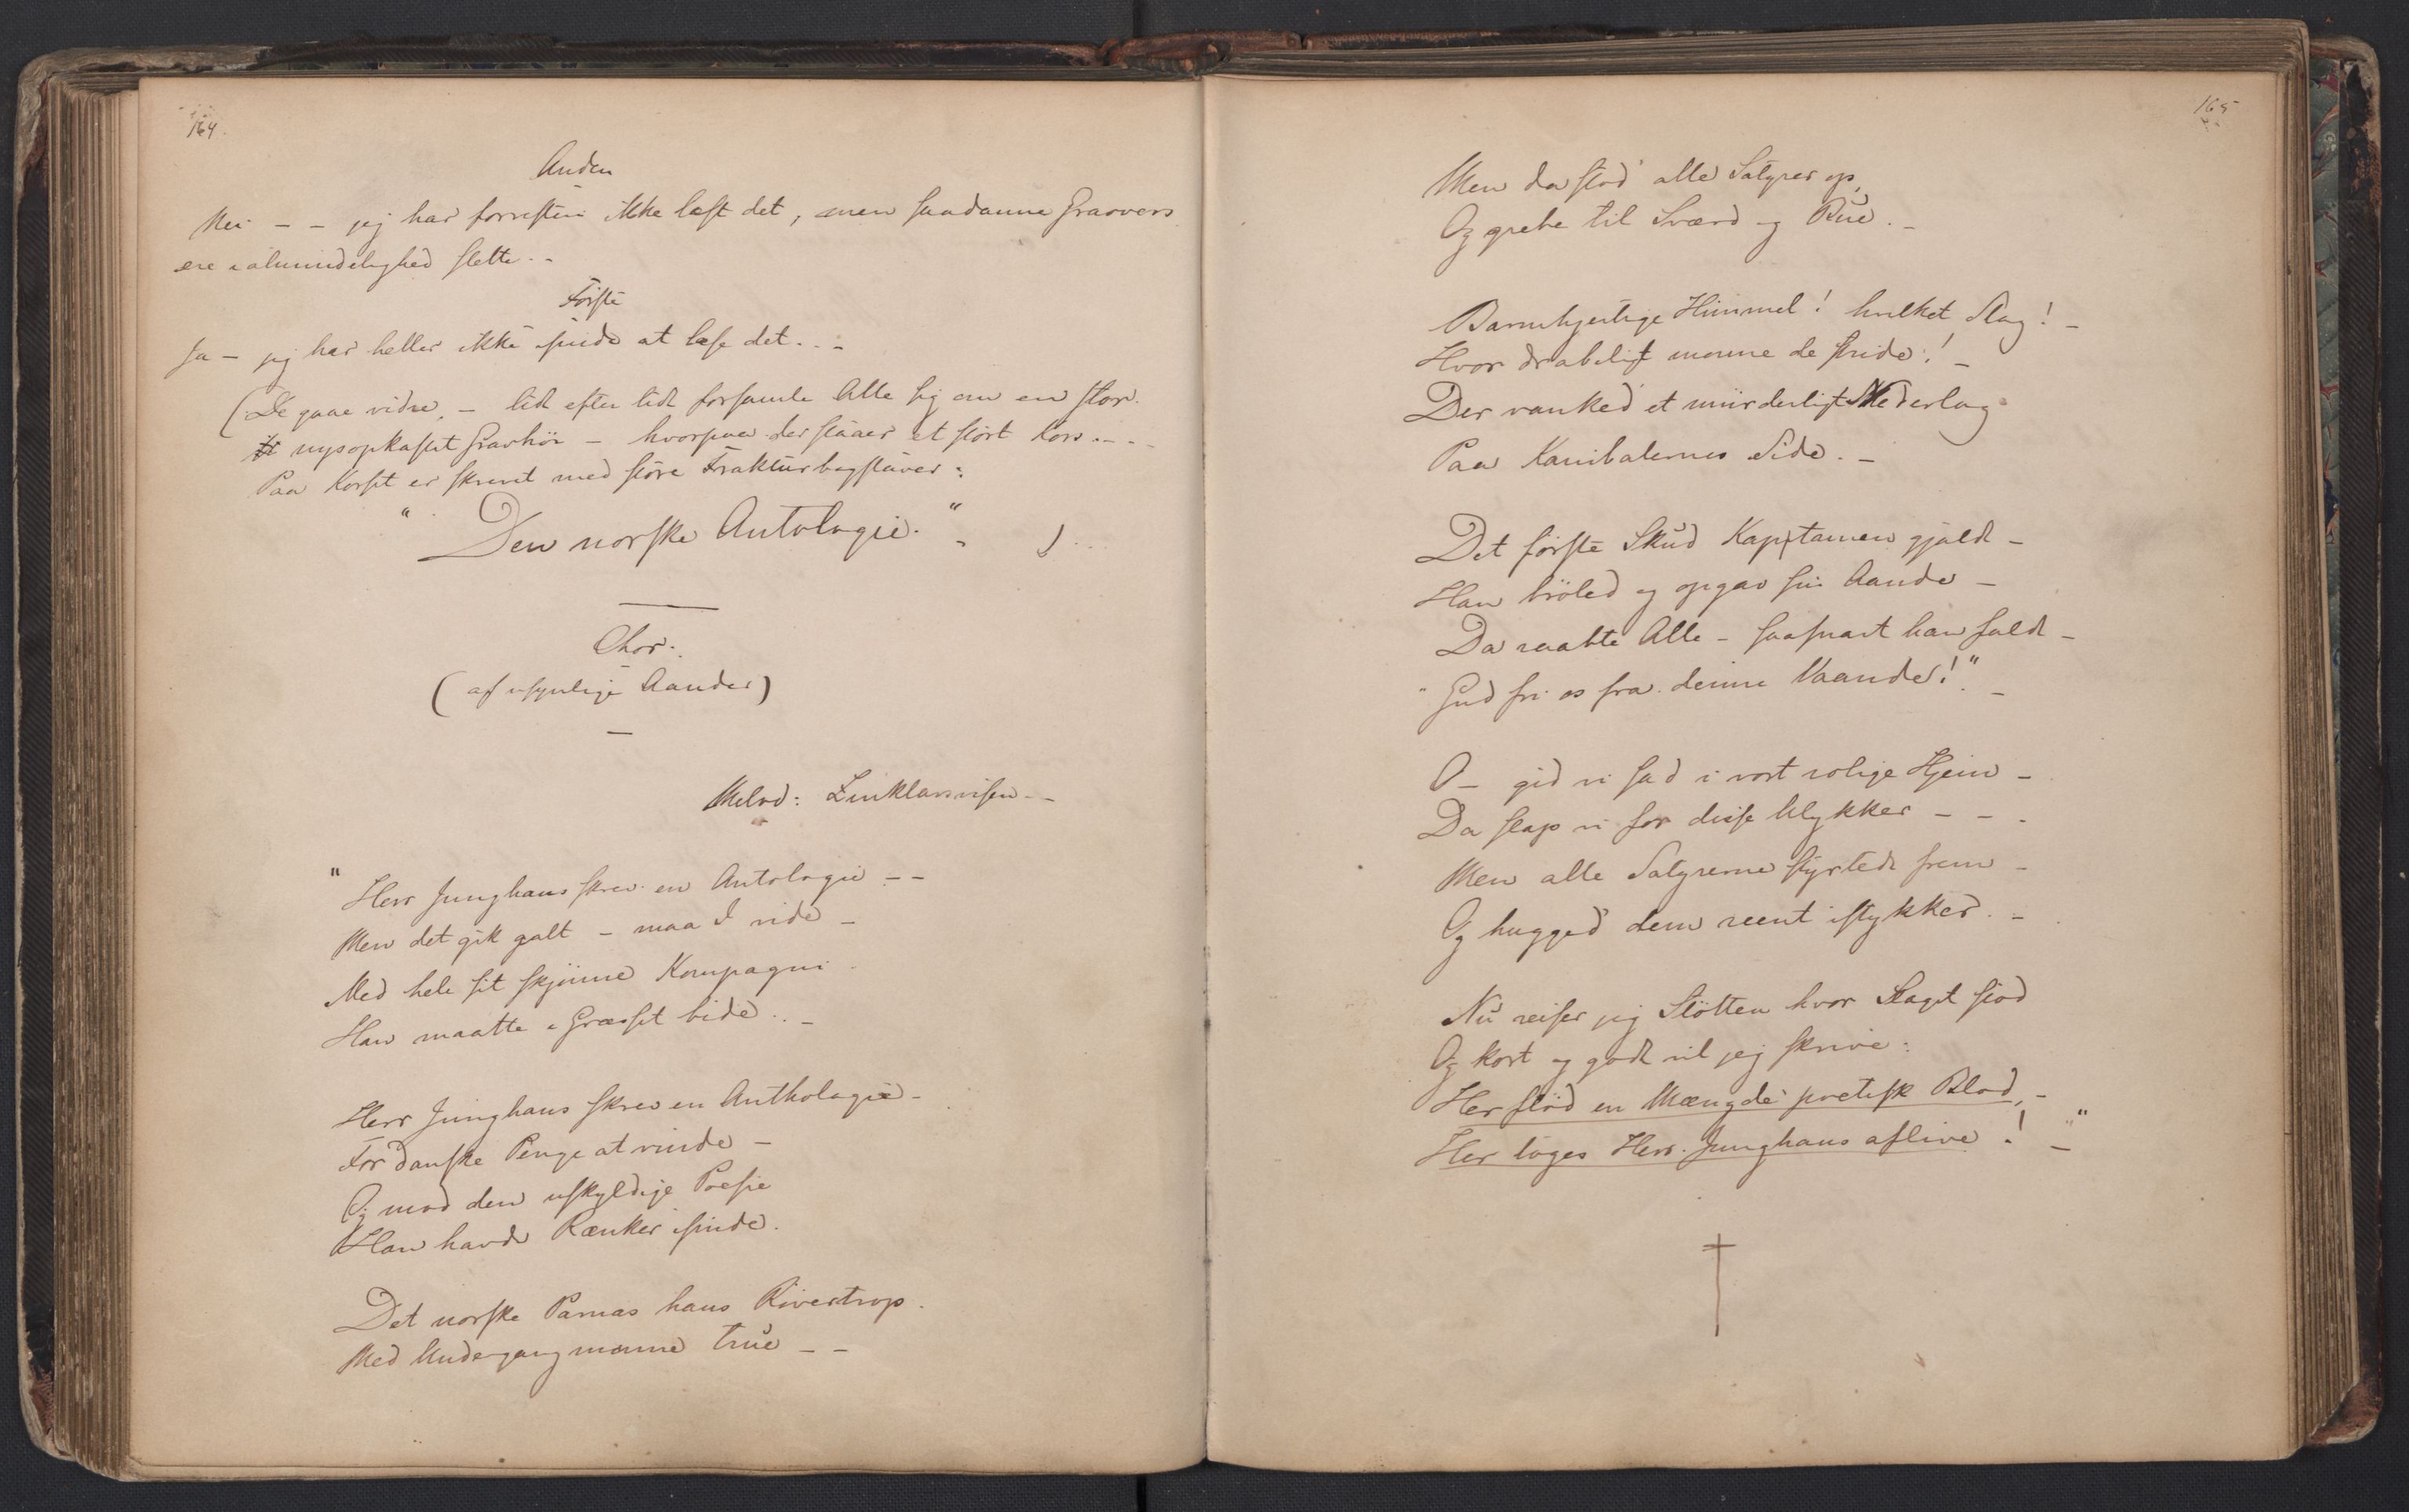 164.
Anden
Nei - - jeg har forresten ikke læst det, men saadanne Gravvers
ere i almindelighed slette. -
Første
Ja - jeg har heller ikke gidet at læse det. . -
(De gaae videre, - lidt efter lidt forsamle Alle sig om en stor
nysopkastet Gravhöi - hvorpaa der staaer et stort Kors . . - -
Paa Korset er skrevet med store Frakturbogstaver:
"Den norske Antologie." - )
Chor.
(af usynlige Aander)
Melod: Zinklarsvisen - -
"Herr Junghans skrev en Antologie - -
Men det gik galt - maa I vide -
Med hele sit skjönne Kompagni
Han maatte i Græsset bide . . -
Herr Junghans skrev en Anthologie -
For danske Penge at vinde -
Og mod den uskyldige Poesie
Han havde Rænker isinde.
Det norske Parnas hans Rövertrop
Med Undergang monne true - -
165
Men da stod alle Satyrer op,
Og grebe til Sværd og Bue. -
Barmhjertige Himmel! hvilket Slag! -
Hvor drabeligt monne de stride! -
Der vanked et mürderligt Nederlag
Paa Kanibalernes Side. -
Det förste Skud Kapitainen gjaldt -
Han bröled og opgav sin Aande -
Da raabte Alle - saasnart han faldt -
"Gud fri os fra denne Vaande!" -
O - gid vi sad i vort rolige Hjem -
Da slap vi for disse Ulykker - - -
Men alle Satyrerne styrtede frem -
Og hugged dem reent istykker. -
Nu reiser jeg Stötten hvor Slaget stod
Og kort og godt vil jeg skrive:
Her flöd en Mængde poetisk Blod, -
Her toges Herr Junghans aflive! - "